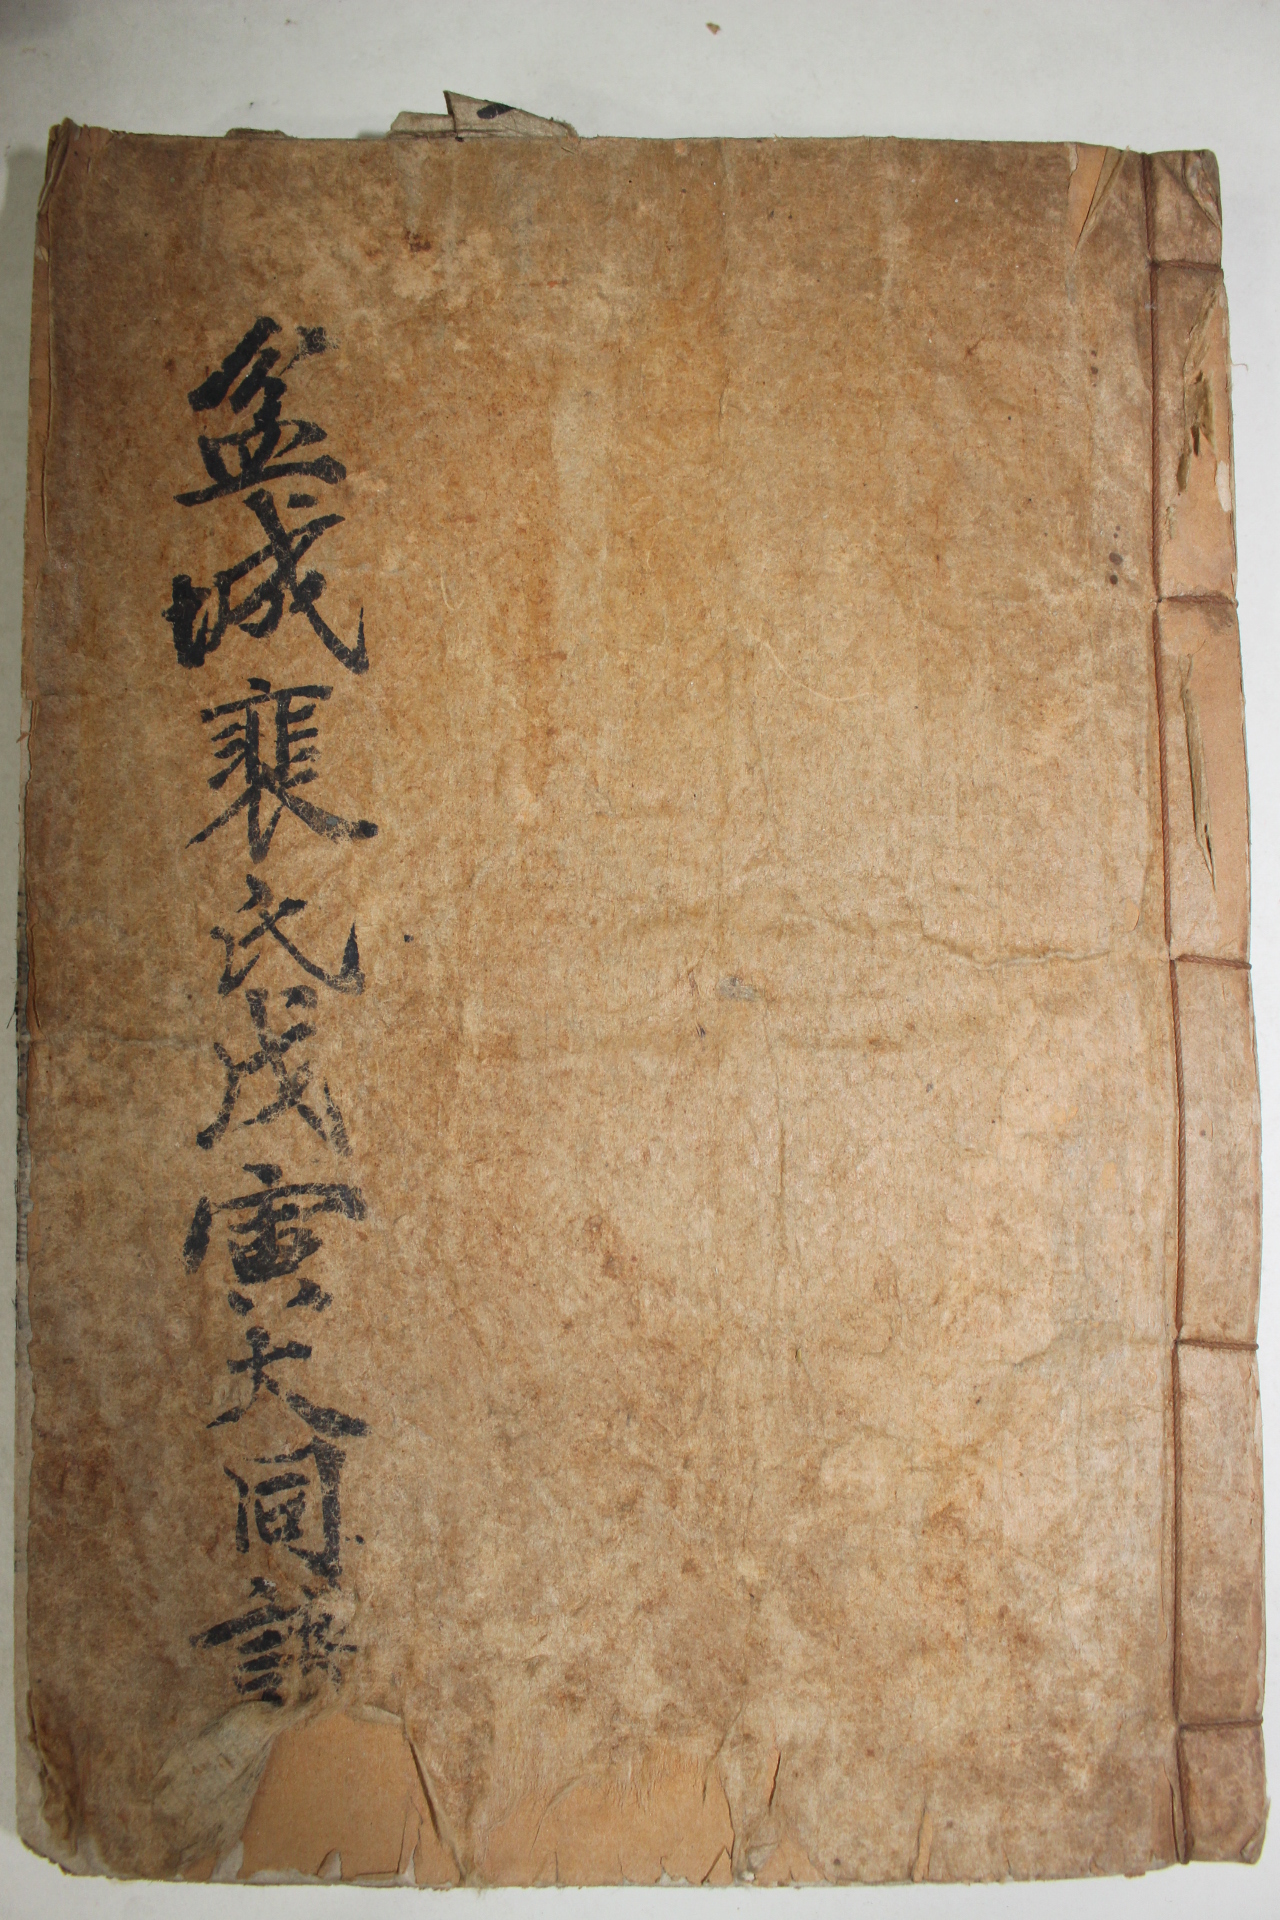 盆城裴氏戊寅大同譜